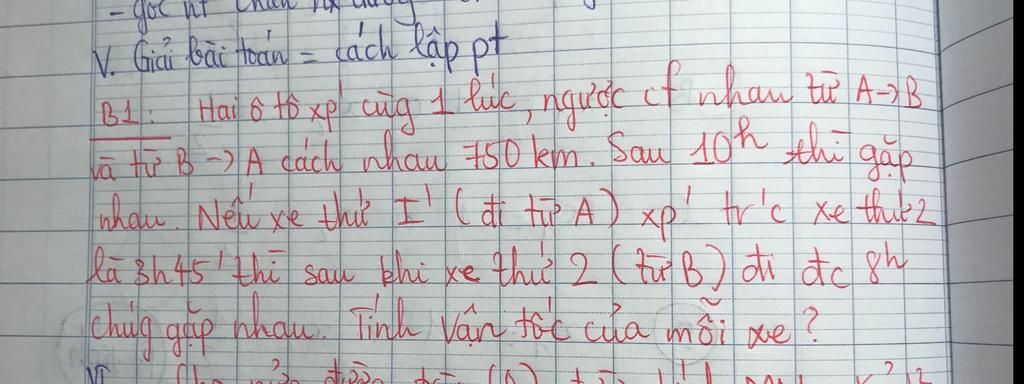 - góc nt chắn nx đường
V. Giải bài toán = cách lập pt
B1: Hai ô tô xp' cùg 1 lúc, ngược cf nhau từ A->B
và từ B -> A cách nhau 750 km. Sau 10h thì gặp
nhau. Nếu xe thứ I' (đi từ A) xp' tr'c xe thứ 2
là 3h45' thì sau khi xe thứ 2 (từ B) đi đc 8h
chúg gặp nhau. Tính vận tốc của mỗi xe?